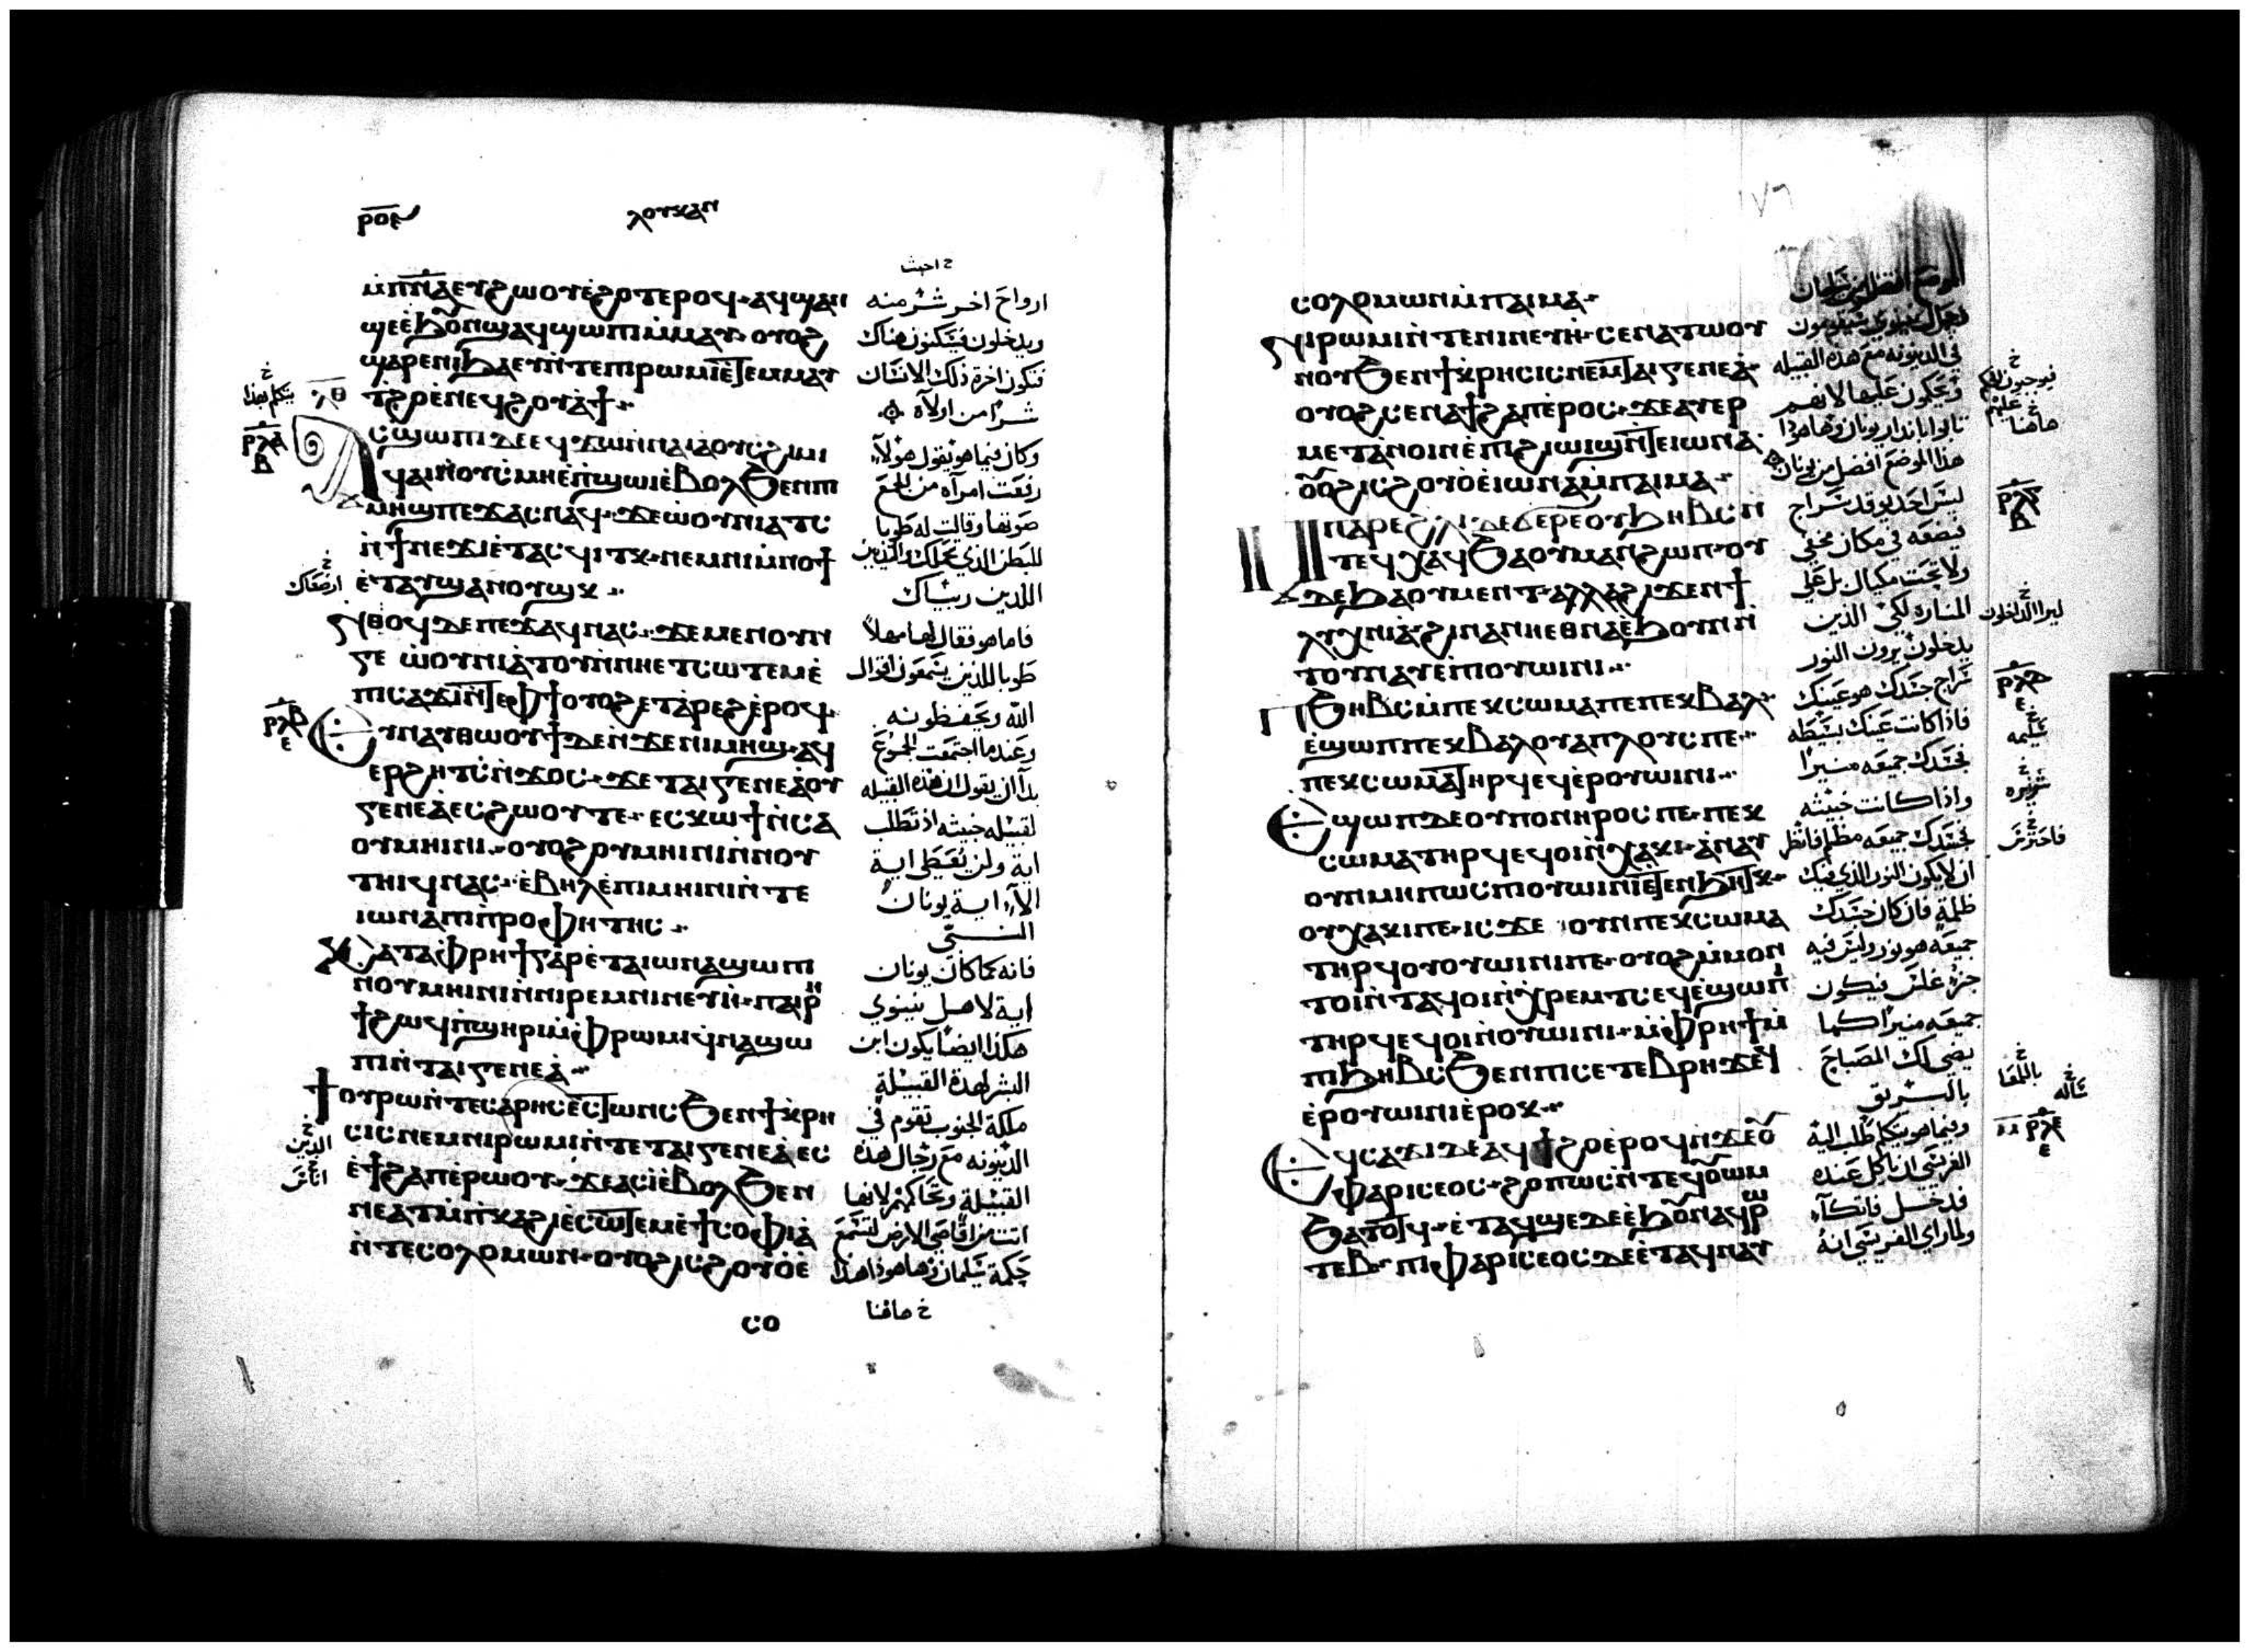 ⲣⲟⲉ
ⲗⲟⲩⲕⲁⲛ
ⲙ̀ⲡ̅ⲛ̅ⲁ̅ ⲉⲩϩⲱⲟⲩ ⲉ̀ϩⲟⲧⲉⲣⲟϥ ⲁϥϣⲁⲛ
ϣⲉ ⲉ̀ϧⲟⲩⲛ ϣⲁϥϣⲱⲡⲓ ⲙ̀ⲙⲁⲩ ⲟⲩⲟϩ
ϣⲁⲣⲉ ⲛⲓϧⲁⲉⲩ ⲛ̀ⲧⲉ ⲡⲓⲣⲱⲙⲓ ⲉ̀ⲧⲉⲙⲙⲁⲩ
ϩⲟ̀ ⲉ̀ⲛⲉϥϩⲟⲩⲁϯ
ⲁⲥϣⲱⲡⲓ ⲇⲉ ⲉϥϫⲱ ⲛ̀ⲛⲁⲓ ⲁ̀ ⲟⲩⲥϩⲓⲙⲓ
ϥⲁⲓ ⲛ̀ⲟⲩⲥⲙⲏ ⲉ̀ⲡϣⲱⲓ ⲉ̀ⲃⲟⲗ ϧⲉⲛ ⲡⲓ
ⲙⲏϣ ⲡⲉϫⲁⲥ ⲛⲁϥ ϫⲉ ⲱ̀ⲟⲩⲛⲓⲁⲧⲥ
ⲛ̀ϯⲛⲉϫⲓ ⲉ̀ⲧⲁⲥϥⲓⲧⲕ ⲛⲉⲙ ⲛⲓⲙ̀ⲛⲟϯ
ⲉ̀ⲧⲁⲩϣⲁⲛⲟⲩϣⲕ
ⲛ̀ⲑⲟϥ ⲇⲉ ⲡⲉϫⲁϥ ⲛⲁⲥ ϫⲉ ⲙⲉⲛⲟⲩⲛ
ⲅⲉ ⲱ̀ⲟⲩⲛⲓⲁ̀ⲧⲟⲩ ⲛ̀ⲛⲏ ⲉⲧⲥⲱⲧⲉⲙ ⲉ̀
ⲡⲓⲥⲁϫⲓ ⲛ̀ⲧⲉ ⲫϯ ⲟⲩⲟϩ ⲉⲧⲁ̀ⲣⲉϩ ⲉ̀ⲣⲟϥ
ⲉⲩⲛⲁⲑⲱⲟⲩϯ ⲇⲉ ⲛ̀ϫⲉ ⲛⲓⲙⲏϣ ⲁϥ
ⲉⲣϩⲏⲧⲥ ⲛ̀ϫⲟⲥ ϫⲉ ⲧⲁⲓⲅⲉⲛⲉⲁ̀ ⲟⲩ
ⲅⲉⲛⲉⲁ̀ ⲉⲥϩⲱⲟⲩ ⲧⲉ ⲉⲥⲕⲱϯ ⲛ̀ⲥⲁ
ⲟⲩⲙⲏⲓⲛⲓ ⲟⲩⲟϩ ⲟⲩⲙⲏⲓⲛⲓ ⲛ̀ⲛⲟⲩ
ⲧⲏⲓϥ ⲛⲁⲥ ⲉ̀ⲃⲏⲗ ⲉ̀ⲡⲓⲙⲏⲓⲛⲓ ⲛ̀ⲧⲉ
ⲓⲱⲛⲁ ⲡⲓⲡ̀ⲣⲟⲫⲏⲧⲏⲥ
ⲕⲁⲧⲁ ⲫⲣⲏϯ ⲅⲁⲣ ⲉ̀ⲧⲁ ⲓⲱⲛⲁ ϣⲱⲡⲓ
ⲛⲟⲩⲙⲏⲓⲛⲓ ⲛ̀ⲛⲓⲣⲉⲙⲛⲓⲛⲉⲩⲏ̀ ⲡⲁⲓⲣⲏ
ϯ ϩⲱϥ ⲡ̀ϣⲏⲣⲓ ⲙ̀ⲫⲣⲱⲙⲓ ϥ̀ⲛⲁϣⲱ
ⲡⲓ ⲛ̀ⲧⲁⲓⲅⲉⲛⲉⲁ̀
ϯⲟⲩⲣⲱ ⲛ̀ⲧⲉ ⲥⲁⲣⲏⲥ ⲉⲥⲉ̀ⲧⲱⲛⲥ ϧⲉⲛ ϯⲕ̀ⲣⲏ
ⲥⲓⲥ ⲛⲉⲙ ⲛⲓⲣⲱⲙⲓ ⲛ̀ⲧⲉ ⲧⲁⲓⲅⲉⲛⲉⲁ̀ ⲉⲥ
ⲉ̀ϯϩⲁⲡ ⲉ̀ⲣⲱⲟⲩ ϫⲉ ⲁⲥⲓ̀ ⲉ̀ⲃⲟⲗ ϧⲉⲛ
ⲛⲉⲁⲩ ⲙ̀ⲡ̀ⲕⲁϩⲓ ⲉ̀ⲥⲱⲧⲉⲙ ⲉ̀ϯⲥⲟⲫⲓⲁ̀
ⲛ̀ⲧⲉ ⲥⲟⲗⲟⲙⲱⲛ ⲟⲩⲟϩ ⲓⲥ ϩⲟⲩⲟ̀ ⲉ̀
ⲥⲟ
خ اخبث
ارواح اخر شر منه
ويدخلون فيسكنون هناك
فتكون اخرة ذلك الانسان
شرا من اولاه
وكان فيما هو يقول هولاء
رفعت امراه من الجمع
صوتها وقالت له طوبا
للبطن الذي حملك والثديين
اللذين ربياك
فاما هو فقال لها مهلا
طوبا للذين يسمعون اقوال
الله ويحفظونه
وعندما اجتمعت الجموع
بدا ان يقول ان هذه القبيله
لقبيله خبيثه اذ تطلب
اية ولن يعطى اية
الا اية يونان
النبي
فانه كما كان يونان
اية لاهل نينوي
هكذا ايضا يكون ابن
البشر لهذه القبيلة
ملكة الجنوب تقوم في
الدينونه مع رجال هذه
القبيلة وتحاكمهم لانها
اتت من اقاصي الارض لتسمع
حكمة سليمان وهاهوذا هذا
خ هاهنا
خ يتكلم بهذا
ⲣⲗⲁ
ⲃ
خ ارضعاك
ⲣⲗⲃ
ⲉ
خ الذين
١٧٦
ⲥⲟⲗⲟⲙⲱⲛ ⲙ̀ⲡⲁⲓⲙⲁ
ⲛⲓⲣⲱⲙⲓ ⲛ̀ⲧⲉ ⲛⲓⲛⲉⲩⲏ̀ ⲥⲉⲛⲁⲧⲱⲟⲩ
ⲛⲟⲩ ϧⲉⲛ ϯⲕ̀ⲣⲏⲥⲓⲥ ⲛⲉⲙ ⲧⲁⲓⲅⲉⲛⲉⲁ̀
ⲟⲩⲟϩ ⲥⲉⲛⲁϯϩⲁⲡ ⲉ̀ⲣⲟⲥ ϫⲉ ⲁⲩⲉⲣ
ⲙⲉⲧⲁⲛⲟⲓⲛ ⲉ̀ⲡϩⲓⲱⲓϣ ⲛ̀ⲧⲉ ⲓⲱⲛⲁ
ⲟⲩⲟϩ ⲓⲥ ϩⲟⲩⲟ̀ ⲉ̀ⲓⲱⲛⲁ ⲙ̀ⲡⲁⲓⲙⲁ
ⲙ̀ⲡⲁⲣⲉ ϩ̀ⲗⲓ ⲇⲉ ϭⲉⲣⲉ ⲟⲩϧⲏⲃⲥ ⲛ̀
ⲧⲉϥⲭⲁϥ ϧⲁ ⲟⲩⲙⲁ ⲛ̀ϩⲱⲡ ⲟⲩ
ⲇⲉ ϧⲁ ⲟⲩⲙⲉⲛⲧ ⲁⲗⲗⲁ ϩⲓϫⲉⲛ ϯ
ⲗⲩⲭⲛⲓⲁ̀ ϩⲓⲛⲁ ⲛⲏ ⲉⲑⲛⲁ ⲉ̀ϧⲟⲩⲛ ⲛ̀
ⲧⲟⲩⲛⲁⲩ ⲉ̀ⲡⲓⲟⲩⲱⲓⲛⲓ
ⲡϧⲏⲃⲥ ⲙ̀ⲡⲉⲕⲥⲱⲙⲁ ⲡⲉ ⲡⲉⲕⲃⲁⲗ
ⲉ̀ϣⲱⲡ ⲡⲉⲕⲃⲁⲗ ⲟⲩⲁⲡⲗⲟⲩⲥ ⲡⲉ
ⲡⲉⲕⲥⲱⲙⲁ ⲧⲏⲣϥ ⲉϥⲉ̀ⲣⲟⲩⲱⲓⲛⲓ
ⲉϣⲱⲡ ⲇⲉ ⲟⲩⲡⲟⲛⲏⲣⲟⲥ ⲡⲉ ⲡⲉⲕ
ⲥⲱⲙⲁ ⲧⲏⲣϥ ⲉϥⲟⲓ ⲛ̀ⲭⲁⲕⲓ ⲁ̀ⲛⲁⲩ
ⲟⲩⲛ ⲙⲏⲡⲱⲥ ⲡⲓⲟⲩⲱⲓⲛⲓ ⲉ̀ⲧⲉⲛϧⲏⲧⲕ
ⲟⲩⲭⲁⲕⲓ ⲡⲉ ⲓⲥϫⲉ ⲟⲩⲛ ⲡⲉⲕⲥⲱⲙⲁ
ⲧⲏⲣϥ ⲟⲩⲟⲩⲱⲓⲛⲓ ⲡⲉ ⲟⲩⲟϩ ⲙ̀ⲙⲟⲛ
ⲧⲟⲓ ⲛ̀ⲧⲁϥ ⲟⲓ ⲛ̀ⲭ̀ⲣⲉⲙⲧⲥ ⲉϥⲉ̀ϣⲱⲡⲓ
ⲧⲏⲣϥ ⲉϥⲟⲓ ⲛ̀ⲟⲩⲱⲓⲛⲓ ⲙ̀ⲫⲣⲏϯ ⲙ̀
ⲡⲓϧⲏⲃⲥ ϧⲉⲛ ⲡⲓⲥⲉⲧⲉⲃⲣⲏϫ ⲉϥ
ⲉ̀ⲣⲟⲩⲱⲓⲛⲓ ⲉ̀ⲣⲟⲕ
ⲉϥⲥⲁϫⲓ ⲇⲉ ⲁϥϯϩⲟ ⲉ̀ⲣⲟϥ ⲛ̀ϫⲉ ⲟⲩ
ⲫⲁⲣⲓⲥⲉⲟⲥ ϩⲟⲡⲱⲥ ⲛ̀ⲧⲉϥⲟⲩⲱⲙ
ϧⲁⲧⲟⲧϥ ⲉ̀ⲧⲁϥϣⲉ ⲇⲉ ⲉ̀ϧⲟⲩⲛ ⲁϥⲣⲱ
ⲧⲉⲃ ⲡⲓⲫⲁⲣⲓⲥⲉⲟⲥ ⲇⲉ ⲉ̀ⲧⲁϥⲛⲁⲩ
في الدينونه مع هذه القبيله
ويحكمون عليها لانهم
تابوا بانذار يونان وهاهوذا
هذا الموضع افضل من يونان
ليس احد يوقد سراج
فيضعه في مكان مخفي
ولا تحت مكيال بل علي
المناره لكي الذين
يدخلون يرون النور
سراج جسدك هو عينك
فاذا كانت عينك بسيطه
فجسدك جميعه منيرا
واذا كانت خبيثه
فجسدك جميعه مظلم فانظر
ان لا يكون النور الذي فيك
ظلمة فان كان جسدك
جميعه هو نور وليس فيه
جزء غلس فيكون
جميعه منيرا كما
يضي لك المصباح
بالبريق
وفيما هو يتكلم طلب اليه
الفريسي ان ياكل عنده
فدخل فاتكا
ولما راي الفريسي انه
خ هاهنا
ⲣⲗⲅ
ⲃ
خ ليرا الداخلون
ⲣⲗⲇ
ⲉ
خ سليمه
خ شريره
خ فاحترس
خ ساله
ⲣⲗⲉ
ⲉ